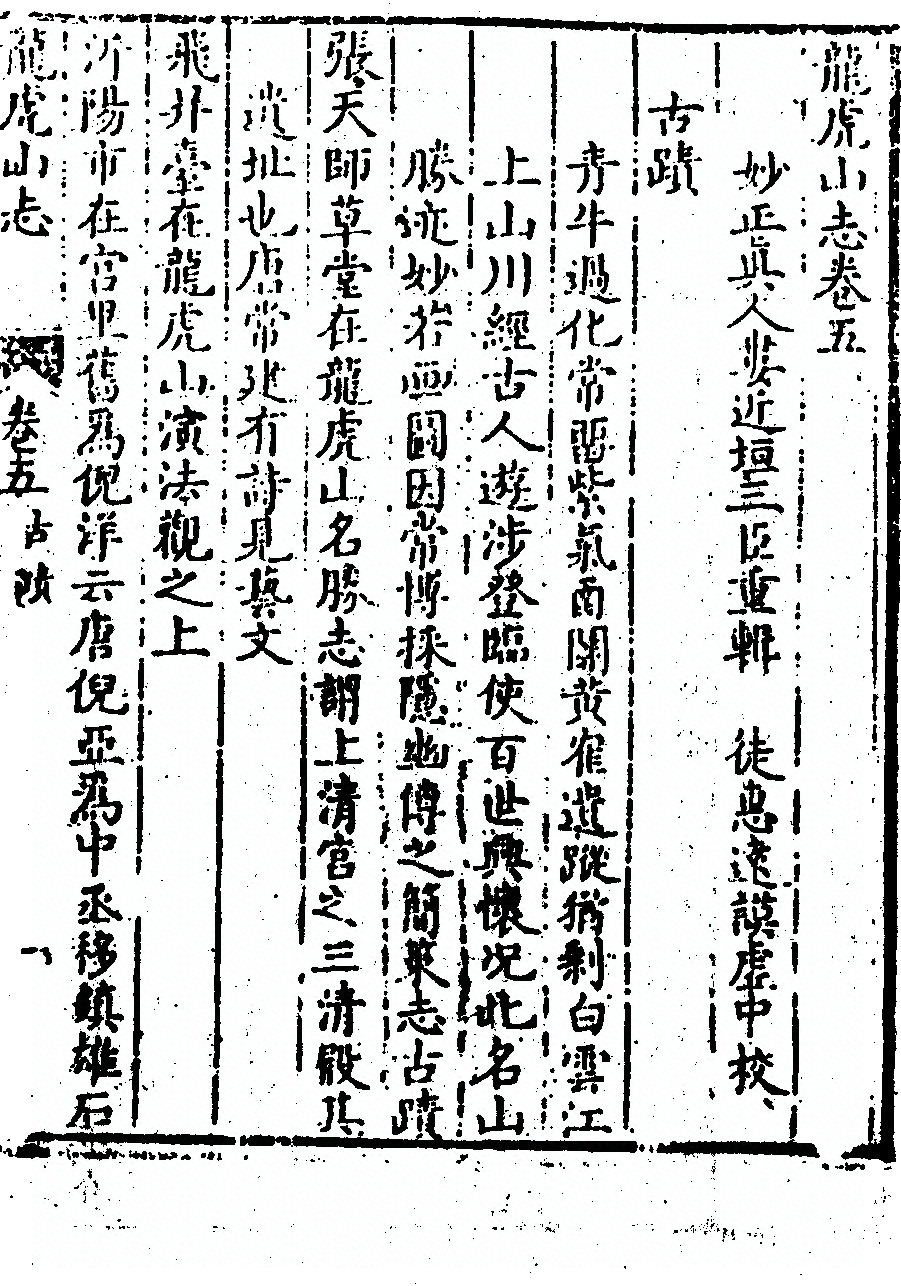 龍虎山志卷五
妙正真人婁近垣三臣重輯　徒惠遠謨虛中校
古蹟
青牛過化常留紫氣函關黃雀遺蹤猶剩白雲江
上山川經古人遊涉登臨使百世興懷况此名山
勝迹妙若亞圖因常博採隱幽傳之簡策志古蹟
張天師草堂在龍虎山名勝志謂上清宮之三清殿其
遺址也唐常建有詩見藝文
飛升臺在龍虎山演法觀之上
沂陽市在宮里舊爲倪洋云唐倪亞爲中丞移鎮雄石
龍虎山志
卷五 古蹟
一